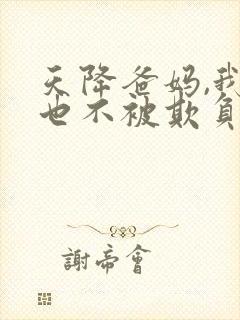 天降爸妈,我
也不被欺负
謝帝會